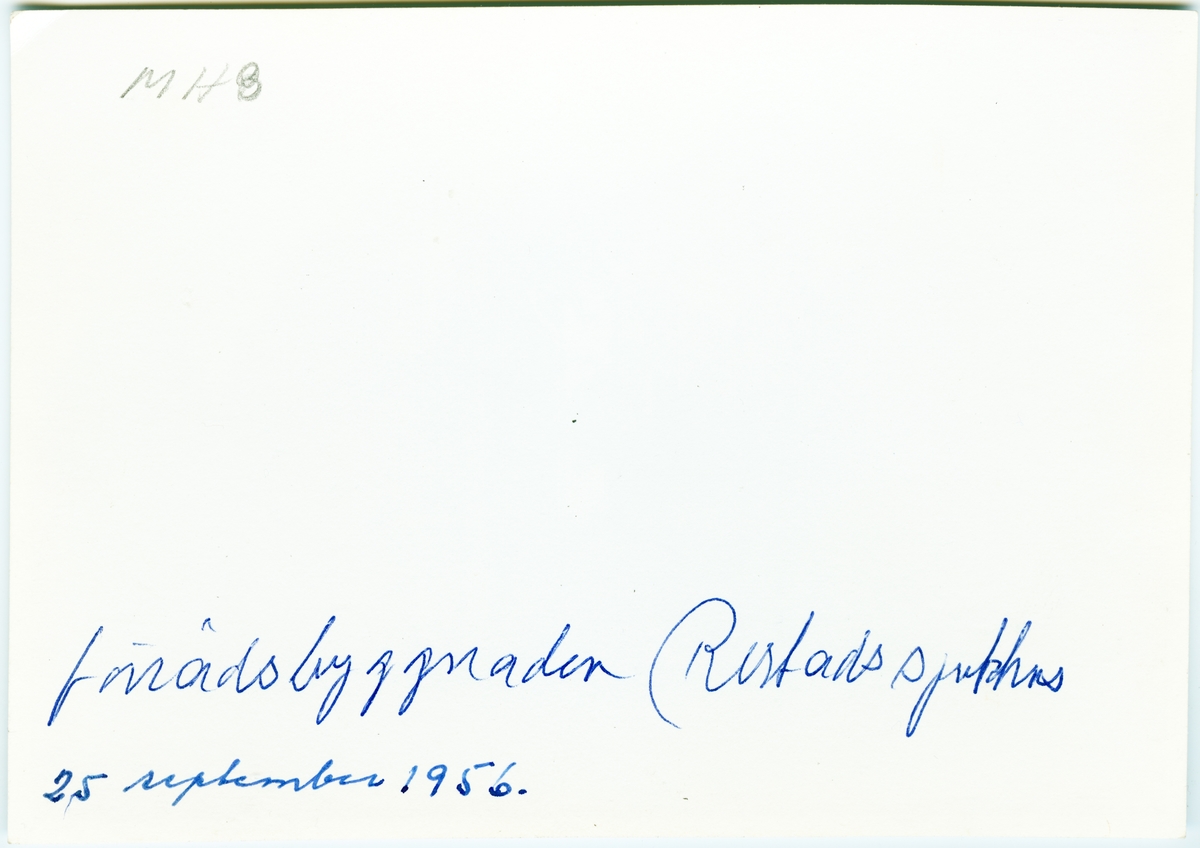 MHB
förrådsbyggnaden (Restads sjukhus
25 september 1956.